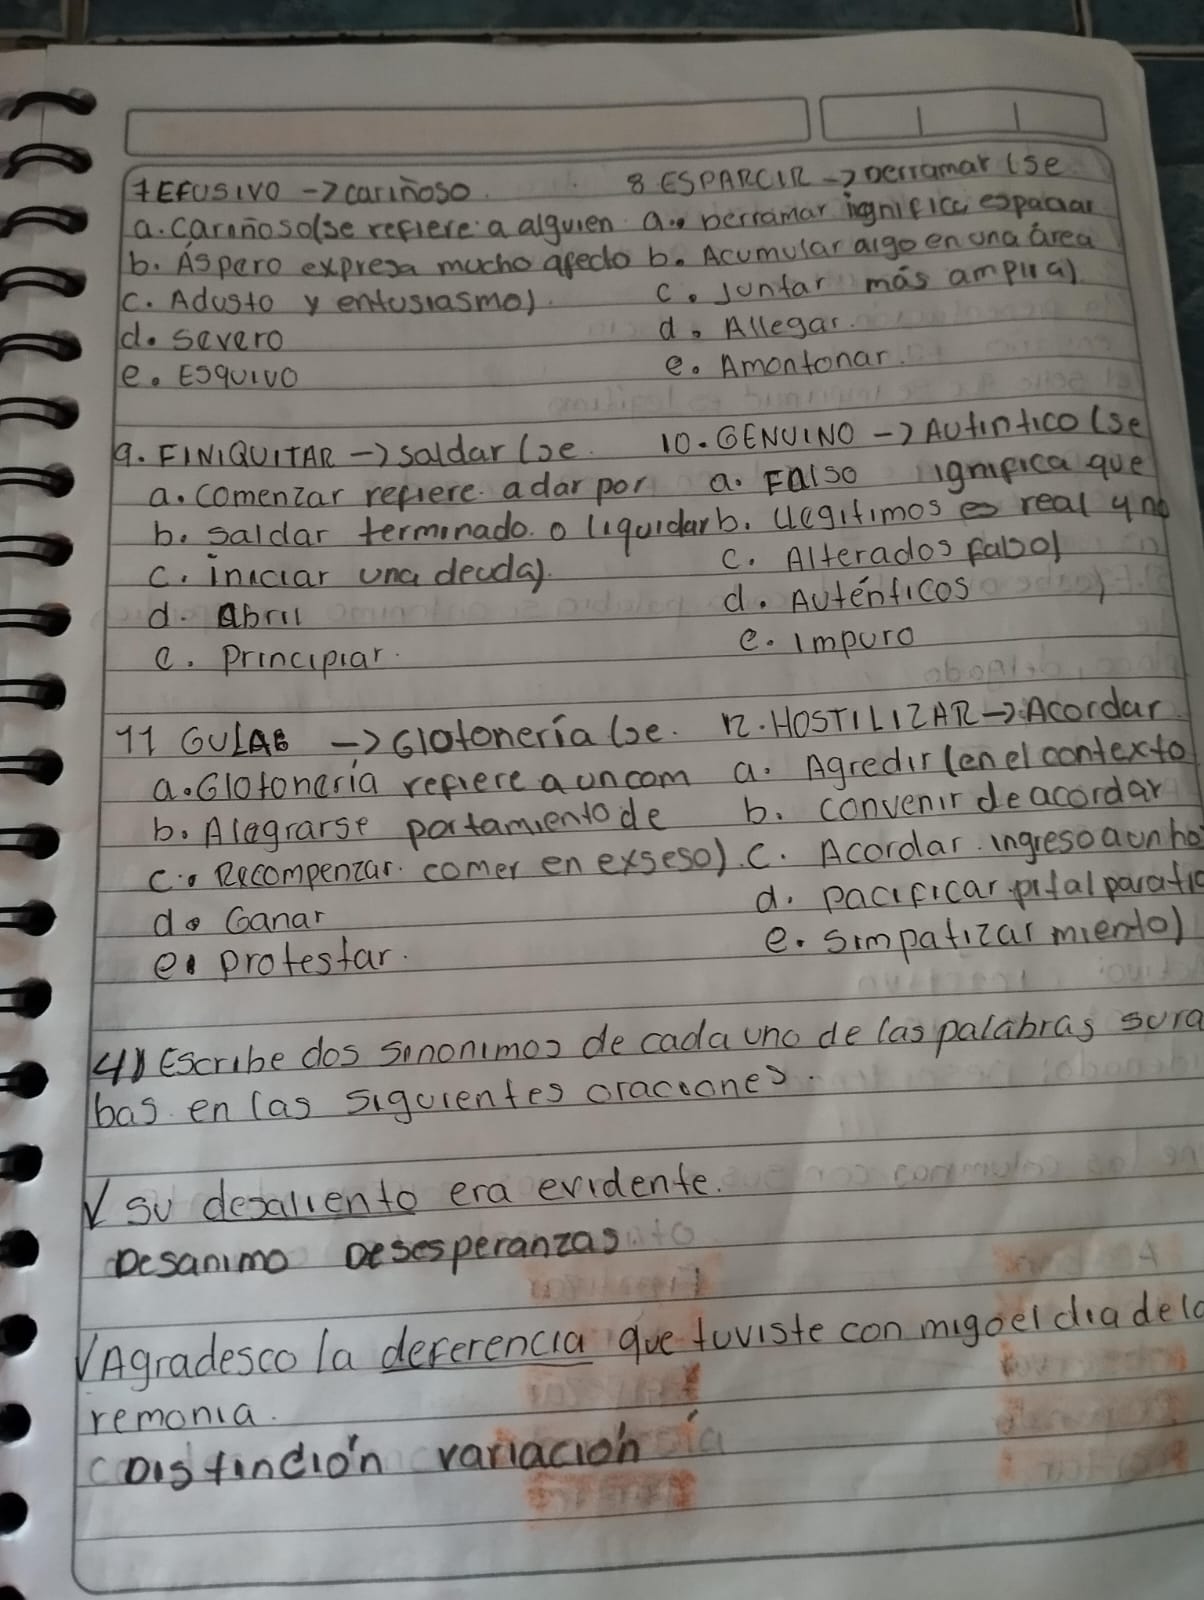 7 EFUSIVO -> cariñoso. 8. ESPARCIR -> Derramar (se
a. Cariñoso (se refiere a alguien a. Derramar ignifica espaciar
b. Áspero expresa mucho afecto b. Acumular algo en una área
c. Adusto y entusiasmo). c. Juntar más amplia)
d. Severo d. Allegar.
e. ESQUIVO e. Amontonar.
9. FINIQUITAR -> saldar (se. 10. GENUINO -> Autintico (se
a. Comenzar refiere a dar por a. Falso ignifica que
b. Saldar terminado o liquidar b. Ilegitimos es real y no
c. iniciar una deuda). c. Alterados falso)
d. Abril d. Auténticos
e. Principiar. e. Impuro
11 GULAB -> Glotonería (se. 12. HOSTILIZAR -> Acordar.
a. Glotonería refiere a un com a. Agredir (en el contexto
b. Alegrarse portamiento de b. convenir de acordar
c. Recompenzar. comer en exseso) c. Acordar. ingreso a un ho
d. Ganar d. pacificar pital para tra
e. protestar. e. simpatizar miento)
4) Escribe dos sinonimos de cada uno de las palabras sura
bas en las siguientes oraciones.
✓ su desaliento era evidente.
Desanimo Desesperanzas
✓ Agradesco la deferencia que tuviste con migo el dia de la
remonia.
Distinción variación